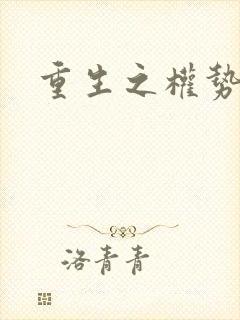 重生之權勢
洛青青